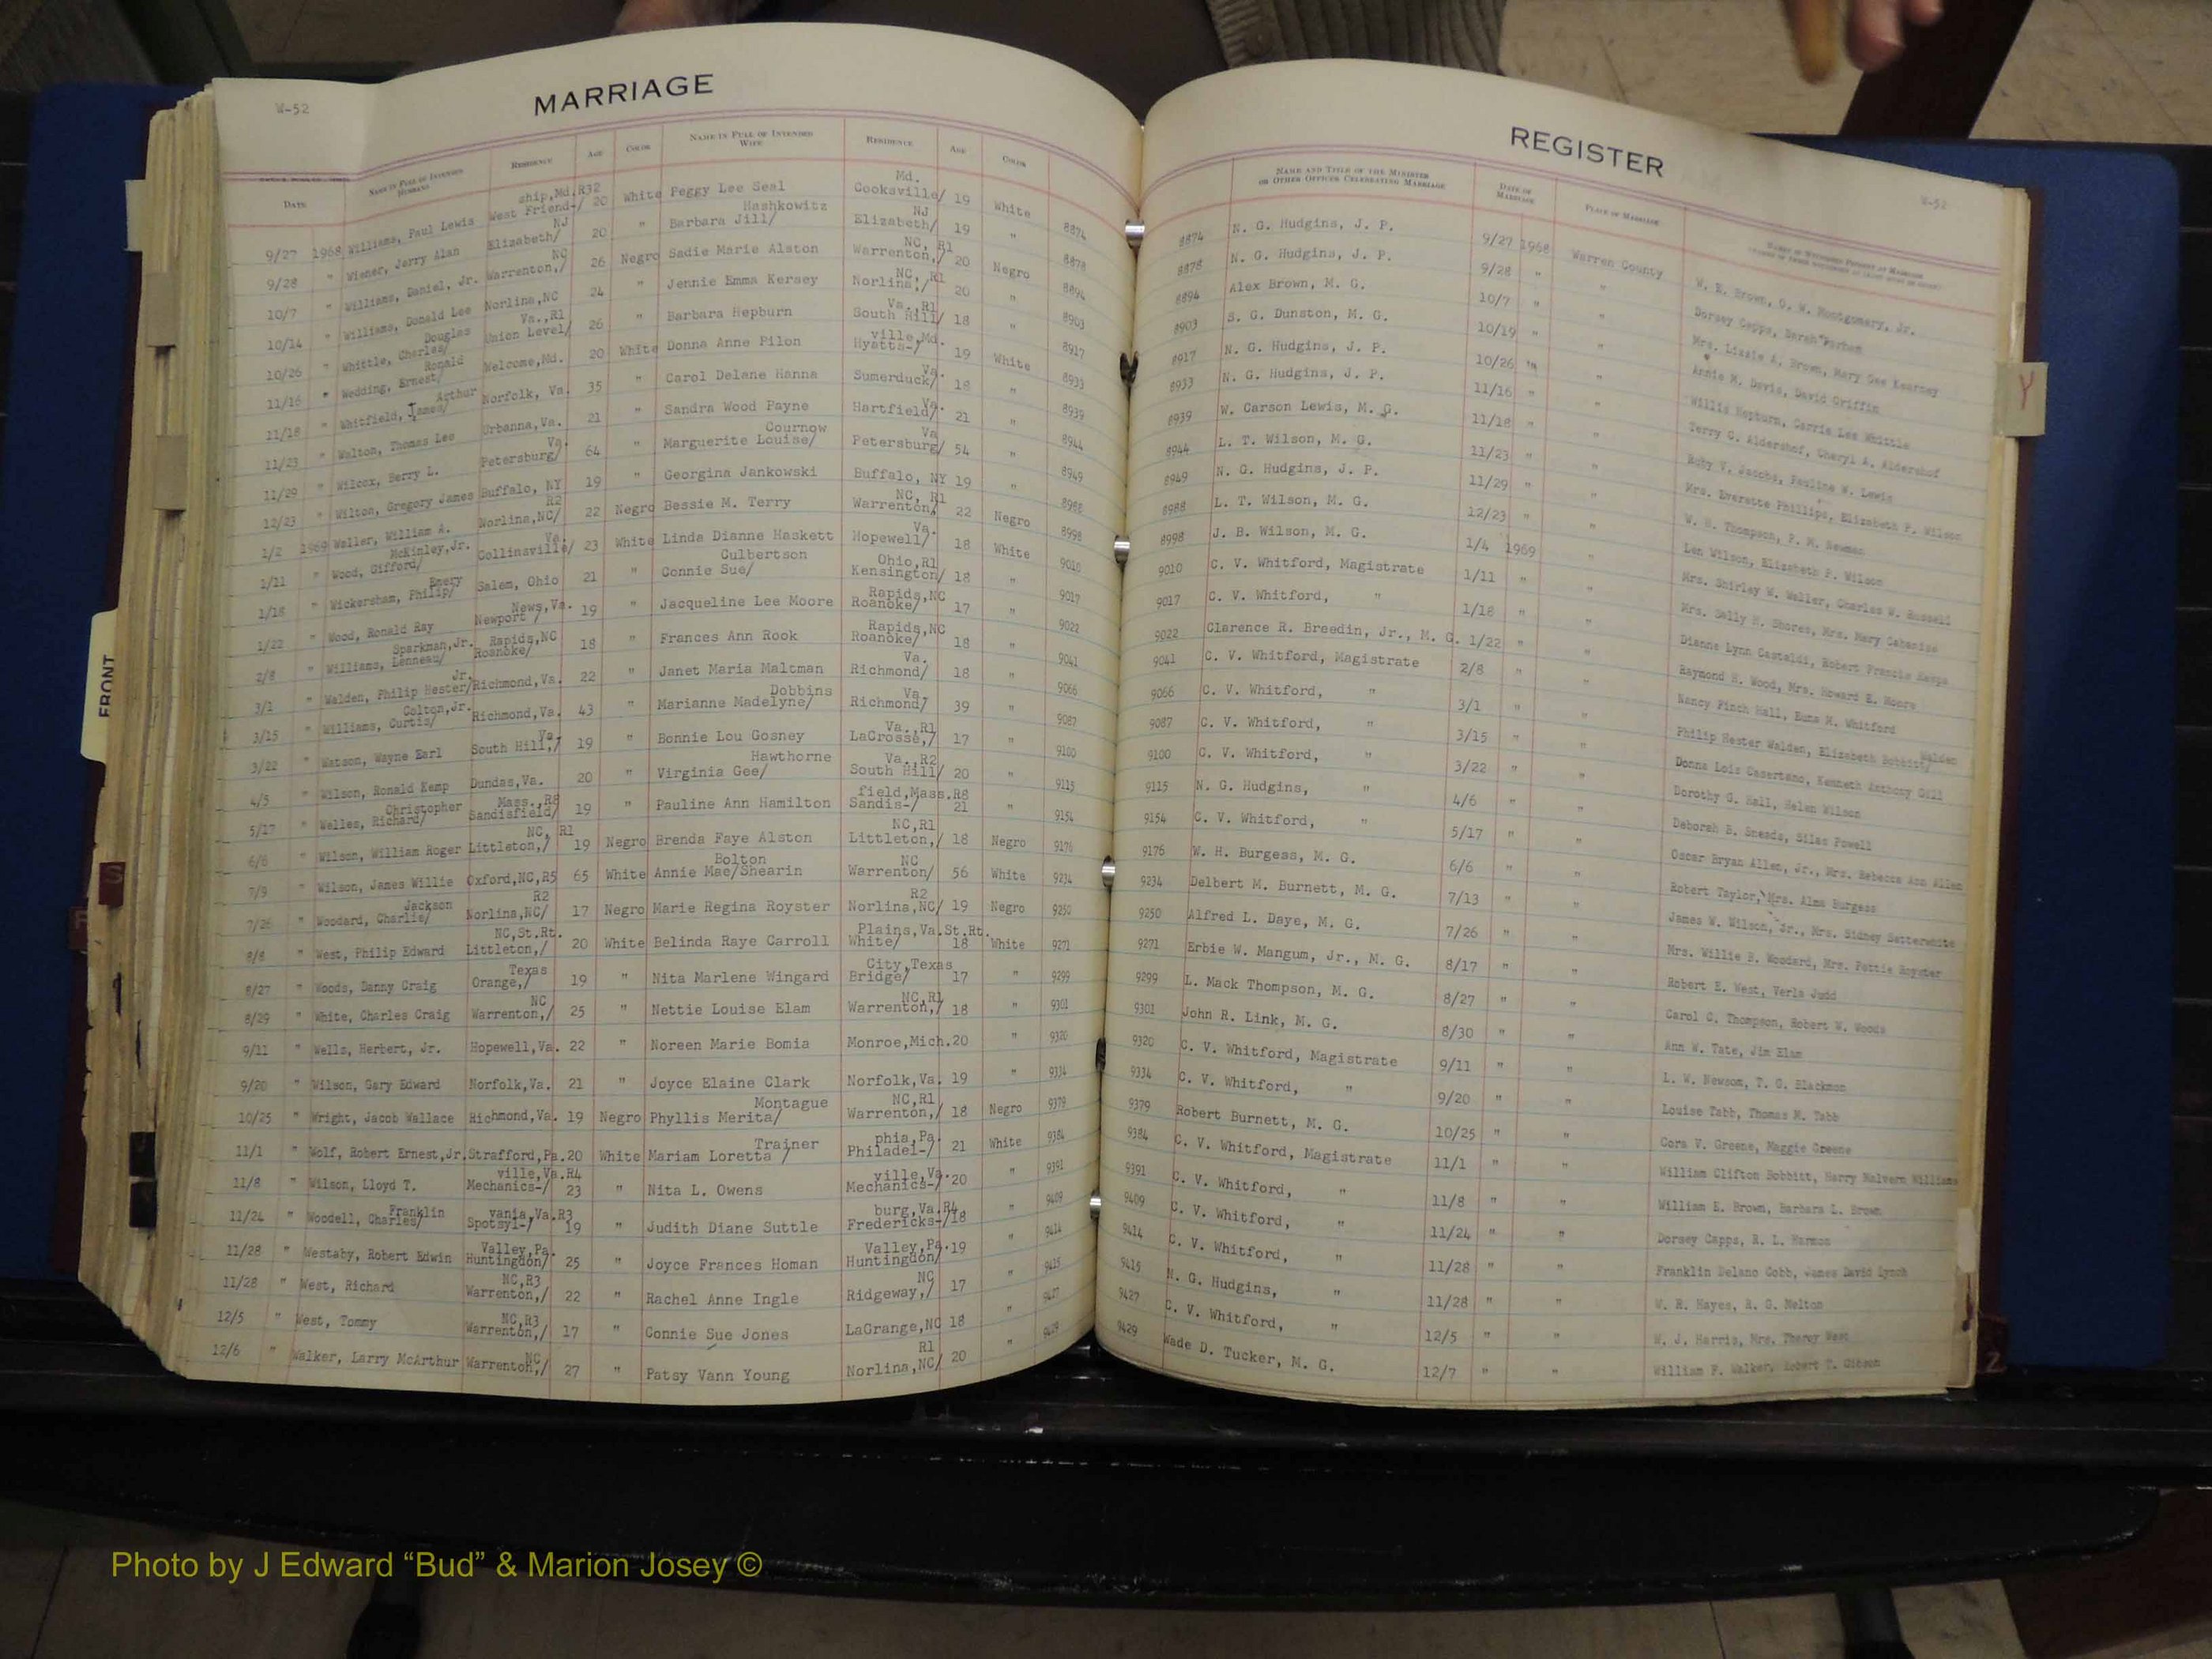 W-52
MARRIAGE
DATE
NAME IN FULL OF INTENDED HUSBAND
RESIDENCE
AGE
COLOR
NAME IN FULL OF INTENDED WIFE
RESIDENCE
AGE
COLOR
9/27 1968 Williams, Paul Lewis West Friend-/ship,Md.R32 20 White Peggy Lee Seal Cooksville/Md. 19 White 8874
9/28 " Wiener, Jerry Alan Elizabeth/NJ 20 " Barbara Jill/Hashkowitz Elizabeth/NJ 19 " 8878
10/7 " Williams, Daniel, Jr. Warrenton,/NC 26 Negro Sadie Marie Alston Warrenton,/NC, R1 20 Negro 8894
10/14 " Williams, Donald Lee Norlina,NC 24 " Jennie Emma Kersey Norlina,/NC, R1 20 " 8903
10/26 " Whittle, Charles/Douglas Union Level/Va.,R1 26 " Barbara Hepburn South Hill/Va.,R1 18 " 8917
11/16 " Wedding, Ernest/Ronald Welcome,Md. 20 White Donna Anne Pilon Hyatts-/ville,Md. 19 White 8933
11/18 " Whitfield, James/Arthur Norfolk, Va. 35 " Carol Delane Hanna Sumerduck/Va. 18 " 8939
11/23 " Walton, Thomas Lee Urbanna,Va. 21 " Sandra Wood Payne Hartfield/Va. 21 " 8944
11/29 " Wilcox, Berry L. Petersburg/Va. 64 " Marguerite Louise/Cournow Petersburg/Va 54 " 8949
12/23 " Wilton, Gregory James Buffalo, NY 19 " Georgina Jankowski Buffalo, NY 19 " 8988
1/2 1969 Waller, William A. Norlina,NC/R2 22 Negro Bessie M. Terry Warrenton,/NC, R1 22 Negro 8998
1/11 " Wood, Gifford/McKinley,Jr. Collinsville/Va. 23 White Linda Dianne Haskett Hopewell/Va. 18 White 9010
1/18 " Wickersham, Philip/Emery Salem, Ohio 21 " Connie Sue/Culbertson Kensington/Ohio,R1 18 " 9017
1/22 " Wood, Ronald Ray Newport/News,Va. 19 " Jacqueline Lee Moore Roanoke/Rapids,NC 17 " 9022
2/8 " Williams, Lenneau/Sparkman,Jr. Roanoke/Rapids,NC 18 " Frances Ann Rook Roanoke/Rapids,NC 18 " 9041
3/1 " Walden, Philip Hester/Jr. Richmond,Va. 22 " Janet Maria Maltman Richmond/Va. 18 " 9066
3/15 " Williams, Curtis/Colton,Jr. Richmond,Va. 43 " Marianne Madelyne/Dobbins Richmond/Va. 39 " 9087
3/22 " Watson, Wayne Earl South Hill,/Va. 19 " Bonnie Lou Gosney LaCrosse,/Va.,R1 17 " 9100
4/5 " Wilson, Ronald Kemp Dundas,Va. 20 " Virginia Gee/Hawthorne South Hill/Va.,R2 20 " 9115
5/17 " Welles, Richard/Christopher Sandisfield/Mass.,R8 19 " Pauline Ann Hamilton Sandis-/field,Mass.R8 21 " 9154
6/6 " Wilson, William Roger Littleton,/NC, R1 19 Negro Brenda Faye Alston Littleton,/NC,R1 18 Negro 9176
7/9 " Wilson, James Willie Oxford,NC,R5 65 White Annie Mae/Bolton Shearin Warrenton/NC 56 White 9234
7/26 " Woodard, Charlie/Jackson Norlina,NC/R2 17 Negro Marie Regina Royster Norlina,NC/R2 19 Negro 9250
8/8 " West, Philip Edward Littleton,/NC,St.Rt. 20 White Belinda Raye Carroll White/Plains,Va.St.Rt. 18 White 9271
8/27 " Woods, Danny Craig Orange,/Texas 19 " Nita Marlene Wingard Bridge/City,Texas 17 " 9299
8/29 " White, Charles Craig Warrenton,/NC 25 " Nettie Louise Elam Warrenton,/NC,R1 18 " 9301
9/11 " Wells, Herbert, Jr. Hopewell,Va. 22 " Noreen Marie Bomia Monroe,Mich. 20 " 9320
9/20 " Wilson, Gary Edward Norfolk,Va. 21 " Joyce Elaine Clark Norfolk,Va. 19 " 9334
10/25 " Wright, Jacob Wallace Richmond,Va. 19 Negro Phyllis Merita/Montague Warrenton,/NC,R1 18 Negro 9379
11/1 " Wolf, Robert Ernest,Jr. Strafford,Pa. 20 White Mariam Loretta/Trainer Philadel-/phia,Pa. 21 White 9384
11/8 " Wilson, Lloyd T. Mechanics-/ville,Va.R4 23 " Nita L. Owens Mechanics-/ville,Va. 20 " 9391
11/24 " Woodell, Charles/Franklin Spotsyl-/vania,Va.R3 19 " Judith Diane Suttle Fredericks-/burg,Va.R4 18 " 9409
11/28 " Westaby, Robert Edwin Huntingdon/Valley,Pa. 25 " Joyce Frances Homan Huntingdon/Valley,Pa. 19 " 9414
11/28 " West, Richard Warrenton,/NC,R3 22 " Rachel Anne Ingle Ridgeway,/NC 17 " 9415
12/5 " West, Tommy Warrenton,/NC,R3 17 " Connie Sue Jones LaGrange,NC 18 " 9427
12/6 " Walker, Larry McArthur Warrenton,/NC 27 " Patsy Vann Young Norlina,NC/R1 20 " 9429
REGISTER
W-52
NAME AND TITLE OF THE MINISTER OR OTHER OFFICER CELEBRATING MARRIAGE
DATE OF MARRIAGE
PLACE OF MARRIAGE
8874 N. G. Hudgins, J. P. 9/27 1968 Warren County W. E. Brown, G. W. Montgomery, Jr.
8878 N. G. Hudgins, J. P. 9/28 " " Dorsey Capps, Sarah Parham
8894 Alex Brown, M. G. 10/7 " " Mrs. Lizzie A. Brown, Mary Gee Kearney
8903 S. G. Dunston, M. G. 10/19 " " Annie M. Davis, David Griffin
8917 N. G. Hudgins, J. P. 10/26 " " Willis Hepburn, Carrie Lee Whittle
8933 N. G. Hudgins, J. P. 11/16 " " Terry C. Aldershof, Cheryl A. Aldershof
8939 W. Carson Lewis, M. G. 11/18 " " Ruby V. Jacobs, Pauline W. Lewis
8944 L. T. Wilson, M. G. 11/23 " " Mrs. Everette Phillips, Elizabeth P. Wilson
8949 N. G. Hudgins, J. P. 11/29 " " W. H. Thompson, P. M. Newman
8988 L. T. Wilson, M. G. 12/23 " " Len Wilson, Elizabeth P. Wilson
8998 J. B. Wilson, M. G. 1/4 1969 " Mrs. Shirley W. Waller, Charles W. Russell
9010 C. V. Whitford, Magistrate 1/11 " " Mrs. Sally M. Shores, Mrs. Mary Cabaniss
9017 C. V. Whitford, " 1/18 " " Dianne Lynn Castaldi, Robert Francis
9022 Clarence R. Breedin, Jr., M. G. 1/22 " " Raymond H. Wood, Mrs. Howard E. Moore
9041 C. V. Whitford, Magistrate 2/8 " " Nancy Finch Hall, Edna M. Whitford
9066 C. V. Whitford, " 3/1 " " Philip Hester Walden, Elizabeth Bobbitt/Walden
9087 C. V. Whitford, " 3/15 " " Donna Lois Casertano, Kenneth Anthony Gill
9100 C. V. Whitford, " 3/22 " " Dorothy G. Hall, Helen Wilson
9115 N. G. Hudgins, " 4/6 " " Deborah B. Sneads, Silas Powell
9154 C. V. Whitford, " 5/17 " " Oscar Bryan Allen, Jr., Mrs. Rebecca Ann Allen
9176 W. H. Burgess, M. G. 6/6 " " Robert Taylor, Mrs. Alma Burgess
9234 Delbert M. Burnett, M. G. 7/13 " " James W. Wilson, Jr., Mrs. Sidney Satterwhite
9250 Alfred L. Daye, M. G. 7/26 " " Mrs. Willie B. Woodard, Mrs. Pattie Royster
9271 Erbie W. Mangum, Jr., M. G. 8/17 " " Robert E. West, Verla Judd
9299 L. Mack Thompson, M. G. 8/27 " " Carol C. Thompson, Robert W. Woods
9301 John R. Link, M. G. 8/30 " " Ann W. Tate, Jim Elam
9320 C. V. Whitford, Magistrate 9/11 " " L. W. Newsom, T. G. Blackmon
9334 C. V. Whitford, " 9/20 " " Louise Tabb, Thomas M. Tabb
9379 Robert Burnett, M. G. 10/25 " " Cora V. Greene, Maggie Greene
9384 C. V. Whitford, Magistrate 11/1 " " William Clifton Bobbitt, Harry Malvern Williams
9391 C. V. Whitford, " 11/8 " " William E. Brown, Barbara L. Brown
9409 C. V. Whitford, " 11/24 " " Dorsey Capps, R. L. Harmon
9414 C. V. Whitford, " 11/28 " " Franklin Delano Cobb, James David Lynch
9415 N. G. Hudgins, " 11/28 " " W. R. Hayes, R. G. Melton
9427 C. V. Whitford, " 12/5 " " W. J. Harris, Mrs. West
9429 Wade D. Tucker, M. G. 12/7 " " William F. Walker, Robert T. Gibson
FRONT
S
Y
Z
Photo by J Edward “Bud” & Marion Josey ©